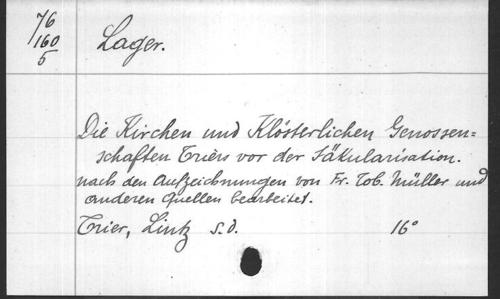 76
160
5
Lager.
Die Kirchen und Klösterlichen Genossen=
schaften Triers vor der Säkularisation.
nach den Aufzeichnungen von Fr. Tob. Müller und
anderen Quellen bearbeitet.
Trier, Lintz s.d. 16°